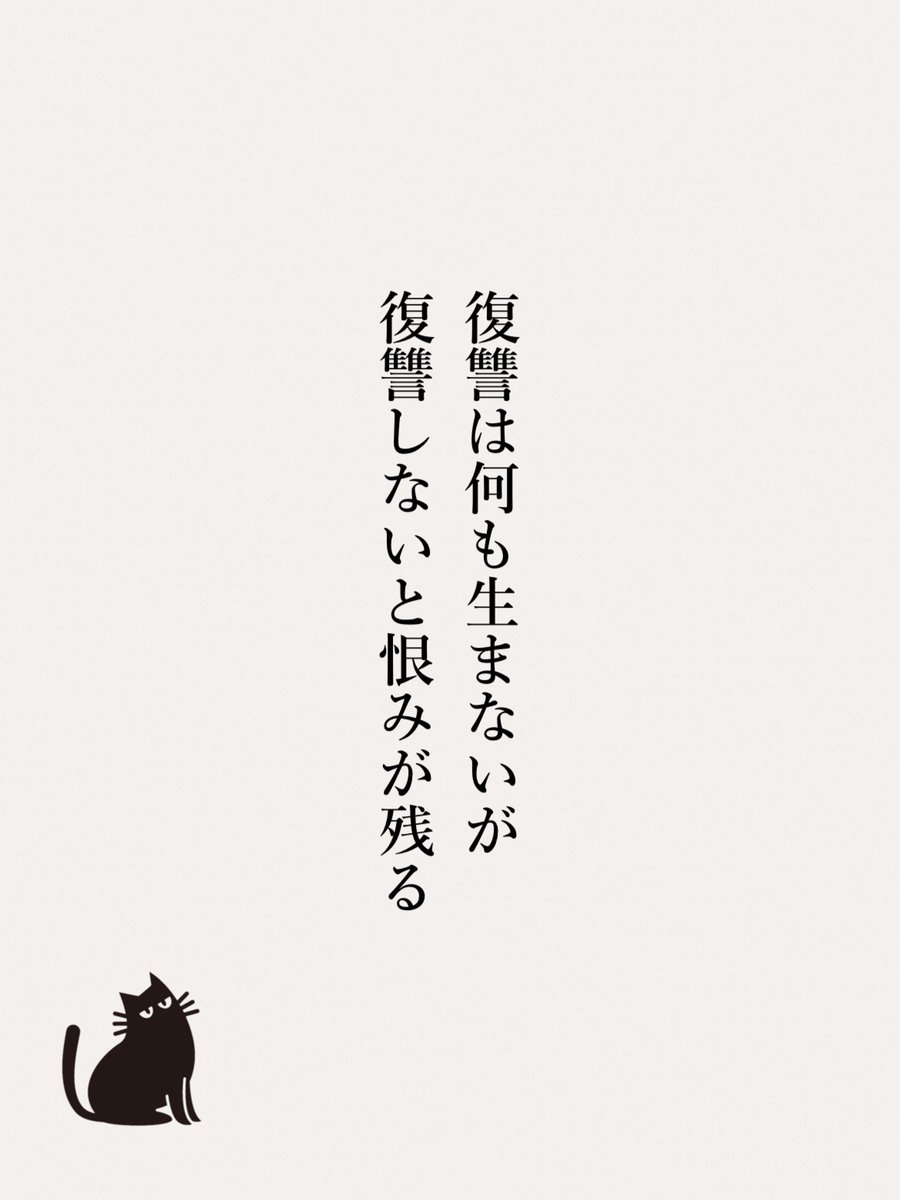 復讐は何も生まないが
復讐しないと恨みが残る